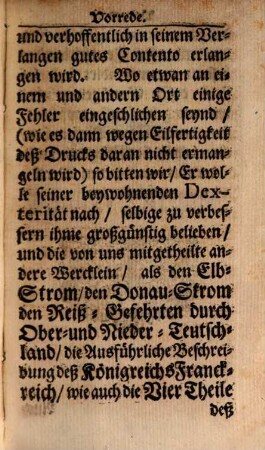 Vorrede.
und verhoffentlich in seinem Ver-
langen gutes Contento erlan-
gen wird. Wo etwan an ei-
nem und andern Ort einige
Fehler eingeschlichen seynd /
(wie es dann wegen Eilfertigkeit
deß Drucks daran nicht erman-
geln wird) so bitten wir / Er wol-
le seiner beywohnenden Dex-
terität nach / selbige zu verbes-
sern ihme großgünstig belieben /
und die von uns mitgetheilte an-
dere Wercklein / als den Elb-
Strom / den Donau-Strom
den Reiß-Gefehrten durch
Ober-und Nieder-Teutsch-
land / die Ausführliche Beschrei-
bung deß Königreichs Franck-
reich / wie auch die Vier Theile
deß